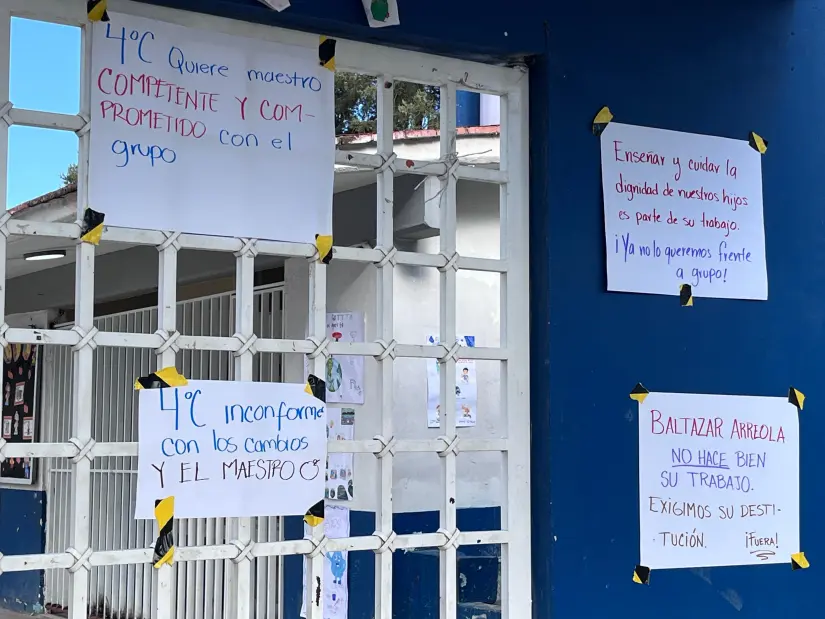 4°C Quiere maestro
COMPETENTE Y COM-
PROMETIDO con el
grupo
Enseñar y cuidar la
dignidad de nuestros hijos
es parte de su trabajo.
¡Ya no lo queremos frente
a grupo!
4°C inconforme
con los cambios
Y EL MAESTRO
BALTAZAR ARREOLA
NO HACE BIEN
SU TRABAJO.
EXIGIMOS SU DESTI-
TUCIÓN. ¡FUERA!